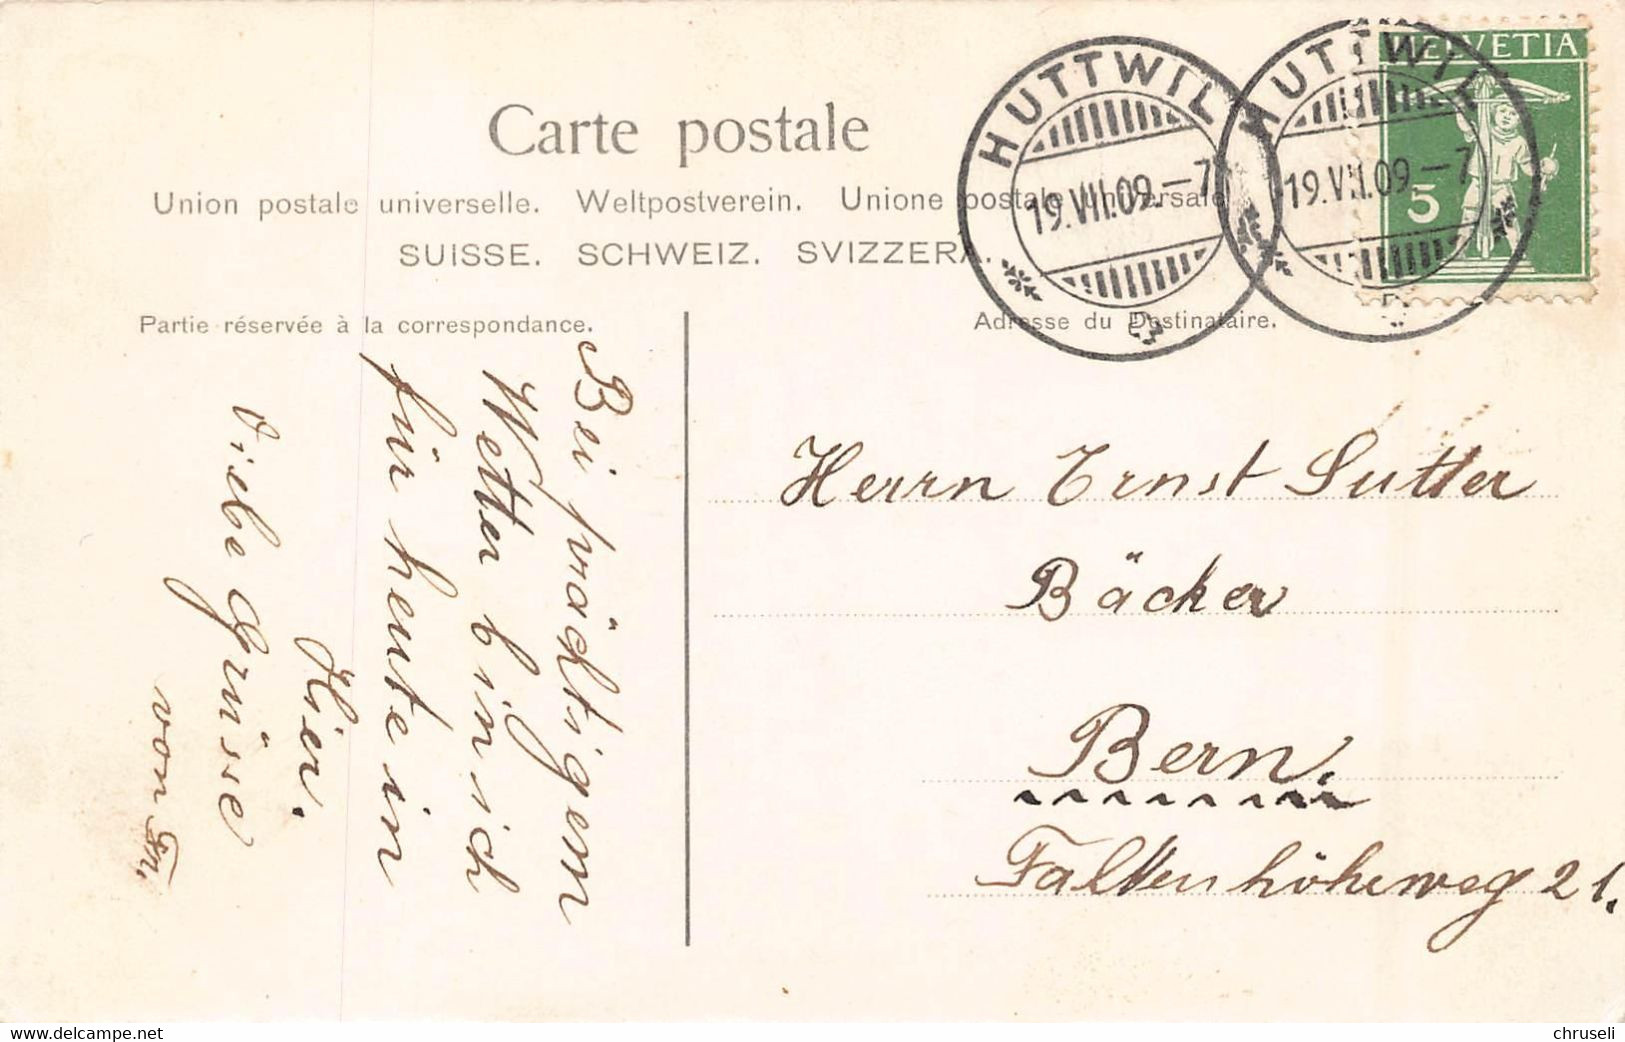 Carte postale
Union postale universelle. Weltpostverein. Unione postale universale
SUISSE. SCHWEIZ. SVIZZERA.
Partie réservée à la correspondance.
Adresse du Destinataire.
HUTTWIL
19.VII.09.–7
HUTTWIL
19.VII.09.–7
HELVETIA
5
Bei prächtigem
Wetter bin ich
für heute in
Hier.
Viele Grüsse
von
Herrn Ernst Sutter
Bäcker
Bern.
Falkenhöheweg 21.
www.delcampe.net
chruseli